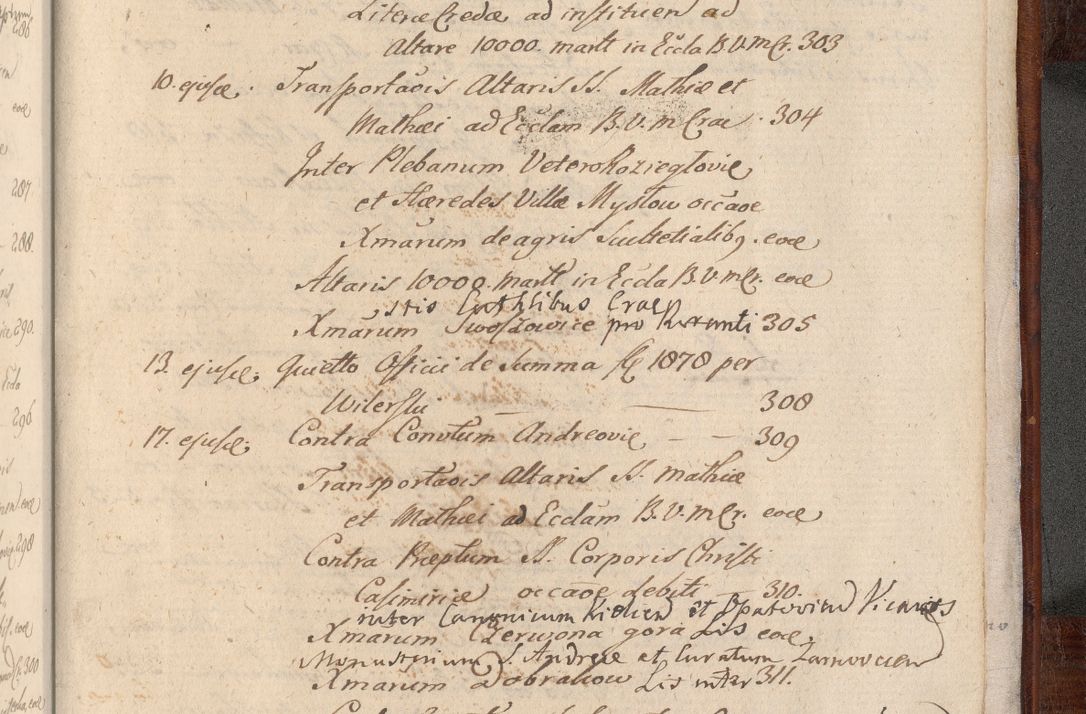 Literæ Credæ ad instituen ad
Altare 10000. marlt in Eccla B.V.M.Cr. 303
10. ejusdē. Transportaõis Altaris SS. Mathiæ et
Mathæi ad Ecclam B.V.M. Crac. 304
Inter Plebanum VeteroKozieglovię
et Hæredes Villæ Mysłow occãoe
Xmãrum de agris Scultetialibq. eoē
Altaris 10000. marlt in Eccla B.V.M.Cr. eoē
Xmãrum Swoszowice pro 305
13. ejusdē. Quietto Officii de Summa fl 1878 per
Wilerslu — — 308
17. ejusdē. Contra Convtum Andreovię — — 309
Transportaõis Altaris SS. Mathiæ
et Mathæi ad Ecclam B.V.M.Cr. eoē
Contra Præptum SS. Corporis Christi
Casimiriæ occãoe debiti — 310.
inter Canonicum et Vicarios
Xmarum Czerwona gora Lis eoē
Monasterium S. Andreæ et Curatum
Xmarum Dobrakow Lis inter 311.